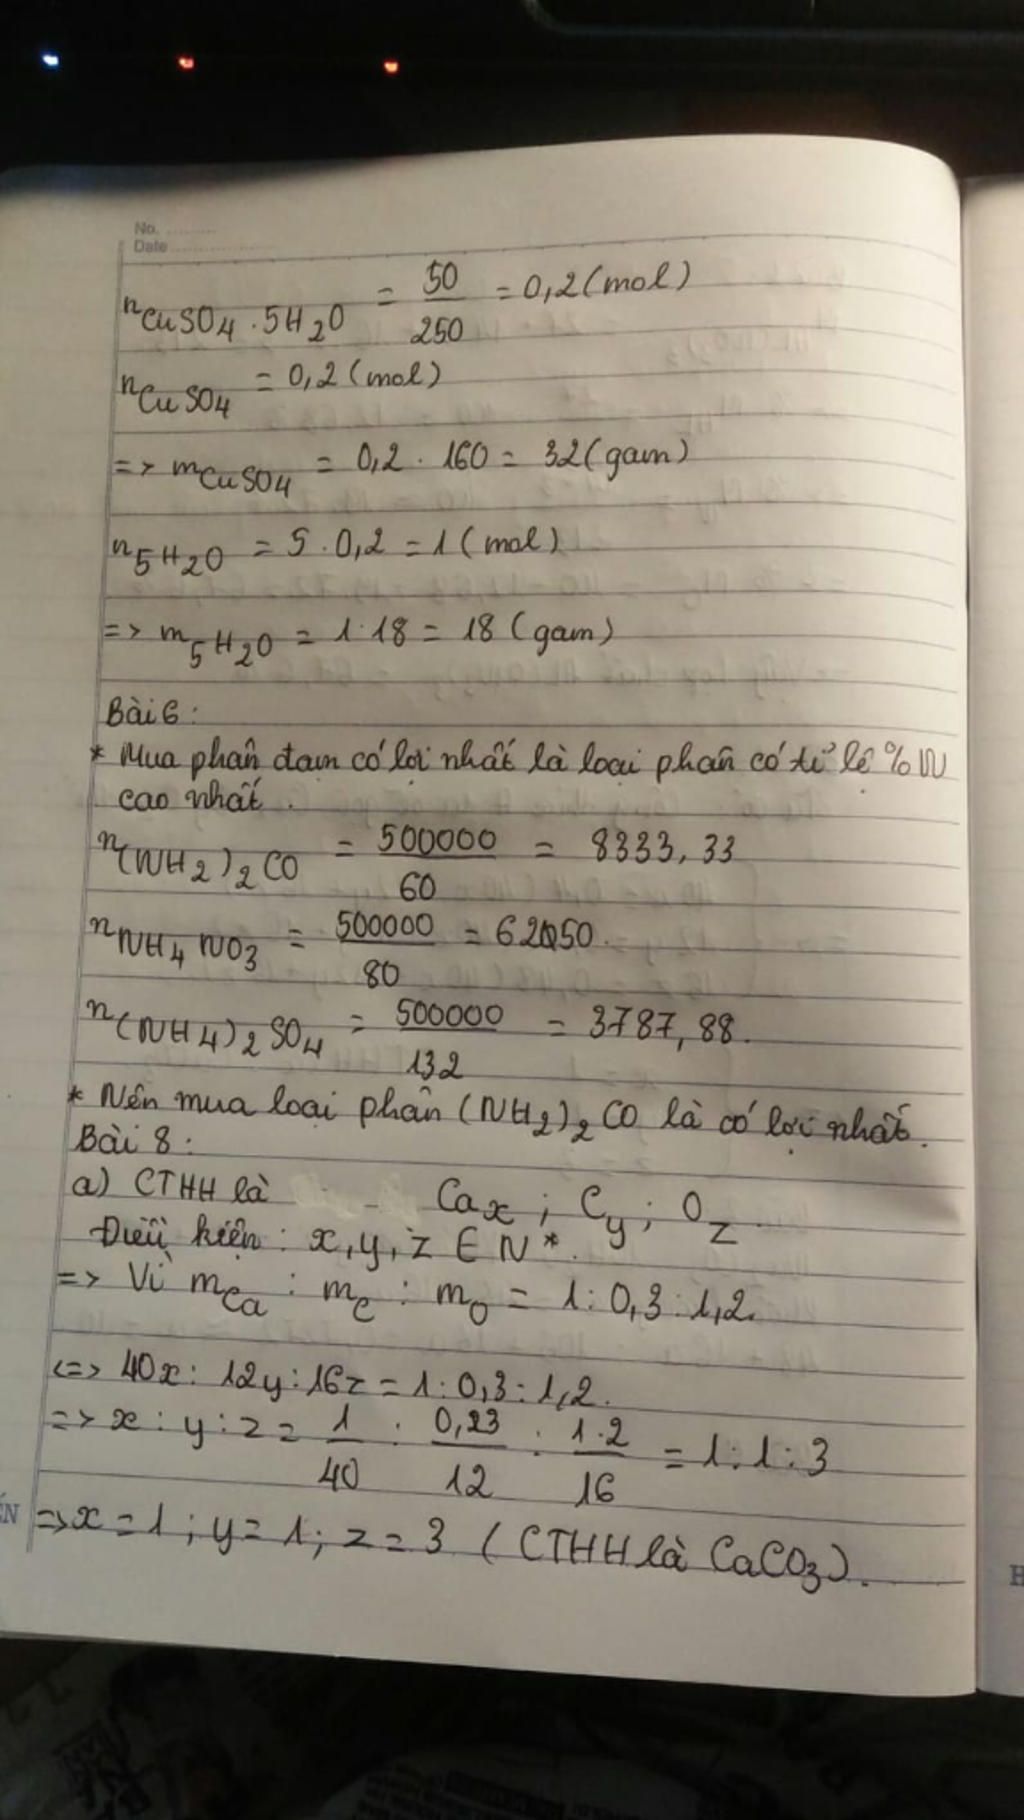 No. ........
Date ....................
n CuSO4 . 5H2O = 50/250 = 0,2 (mol)
n CuSO4 = 0,2 (mol)
=> m CuSO4 = 0,2 . 160 = 32 (gam)
n 5H2O = 5 . 0,2 = 1 (mol)
=> m 5H2O = 1 . 18 = 18 (gam)
Bài 6 :
* Mua phân đạm có lợi nhất là loại phân có tỉ lệ % N
cao nhất .
n (NH2)2CO = 500000/60 = 8333,33
n NH4NO3 = 500000/80 = 6250.
n (NH4)2SO4 = 500000/132 = 3787,88.
* Nên mua loại phân (NH2)2CO là có lợi nhất.
Bài 8 :
a) CTHH là Cax ; Cy ; Oz
Điều kiện : x, y, z ∈ N*.
=> Vì mCa : mC : mO = 1 : 0,3 : 1,2.
<=> 40x : 12y : 16z = 1 : 0,3 : 1,2.
=> x : y : z = 1/40 : 0,23/12 : 1.2/16 = 1 : 1 : 3
=> x = 1 ; y = 1 ; z = 3 (CTHH là CaCO3).